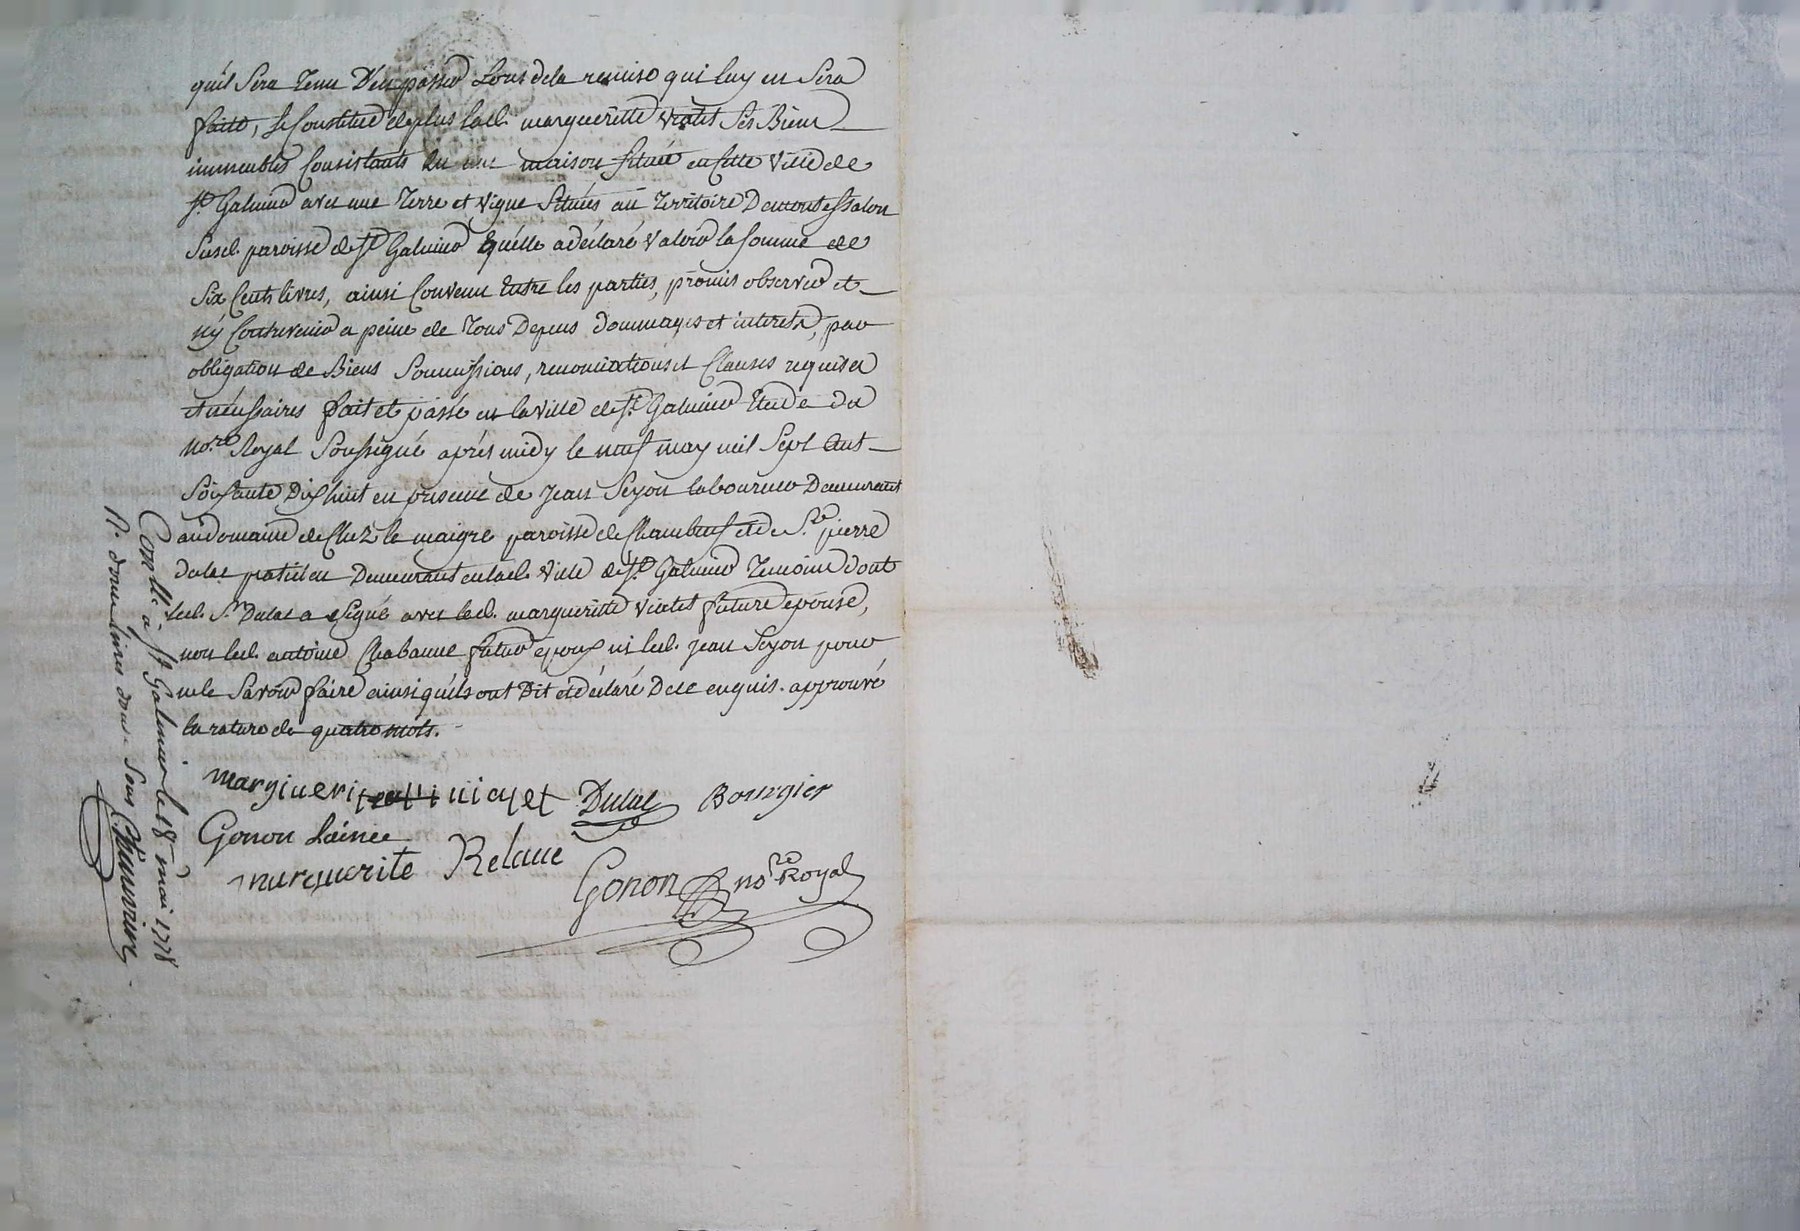 qu'il Sera tenu D'en passer Lors de la remise qui luy en Sera
faite, Se Constitue de plus lad. margueritte vialet Ses Biens
immeubles Consistants en une maison située en cette ville de
St. Galmier avec une Terre et vigne Situées au Territoire De
Susd. paroisse de St. Galmier qu'elle a déclaré valoir la somme de
Six Cents livres, ainsi Convenu Entre les parties, promis observer et
n'y Contrevenir a peine de Tous Depens dommages et interets, par
obligation de Biens Soumissions, renonciations et Clauses requises
et nécessaires fait et passé en la ville de St. Galmier Etude du
No.re Royal Soussigné aprés midy le neuf may mil Sept Cent
Soixante Dix huit en presence de Jean Seyon laboureur Demeurant
au domaine de Chez le maigre paroisse de Chambeuf et de Sr. pierre
dulac praticien Demeurant en lad. ville de St. Galmier Temoins dont
led. Sr. Dulac a signé avec lad. margueritte vialet future épouse,
non led. antoine Chabanne futur epoux ni led. Jean Seyon pour
ne le Savoir faire ainsi qu'ils ont Dit et déclaré De ce enquis. approuvé
la rature de quatre mots.
margiueri vialet Dulac Bourgier
Gonon Lainée
marguerite Relave
Gonon no.re Royal
Con.llé à St. Galmier le 18 mai 1778
R. douze livres douze Sous